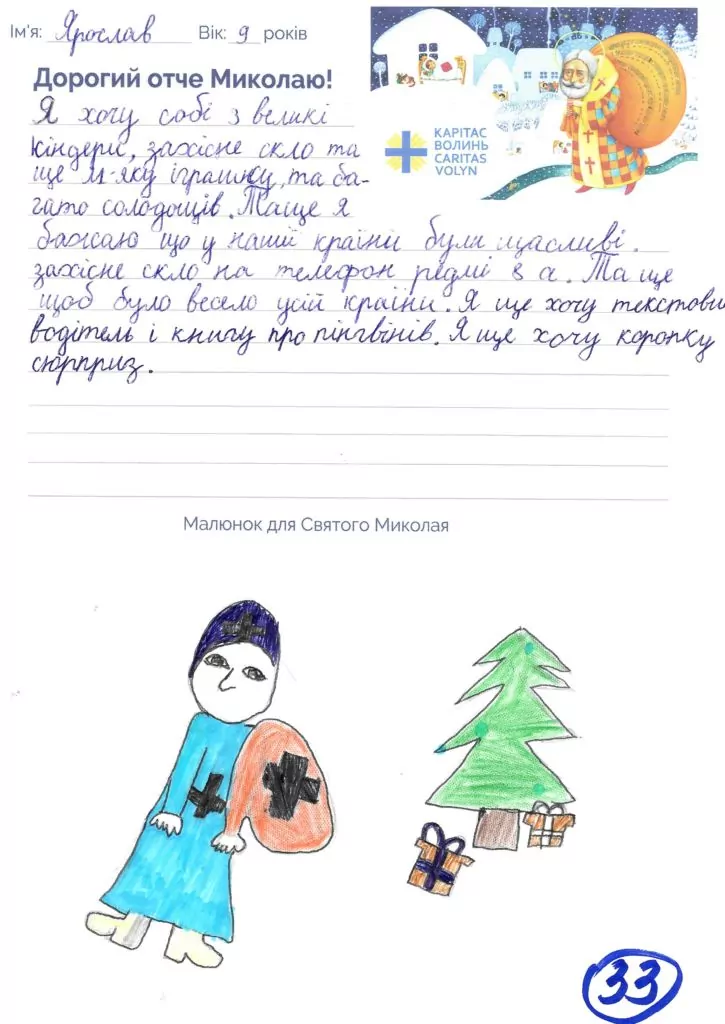 Ім'я: Ярослав Вік: 9 років
Дорогий отче Миколаю!
Я хочу собі 3 великі
кіндери, захісне скло та
ще м'яку іграшку, та ба-
гато солодощів. Таще я
бажаю що у наший країни були щасливі.
захісне скло на телефон редмі 8 а. Та ще
щоб було весело усій країни. Я ще хочу текстови
водітель і книгу про пінгвінів. Я ще хочу коропку
сюрприз.
КАРІТАС
ВОЛИНЬ
CARITAS
VOLYN
Малюнок для Святого Миколая
33